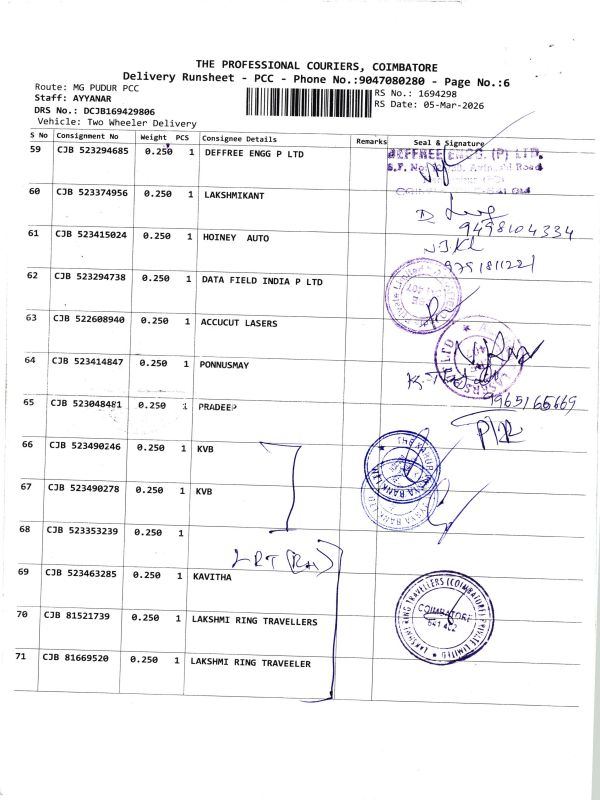 THE PROFESSIONAL COURIERS, COIMBATORE
Delivery Runsheet - PCC - Phone No.:9047080280 - Page No.:6
Route: MG PUDUR PCC
RS No.: 1694298
Staff: AYYANAR
RS Date: 05-Mar-2026
DRS No.: DCJB169429806
Vehicle: Two Wheeler Delivery
S No Consignment No Weight PCS Consignee Details Remarks Seal & Signature
59 CJB 523294685 0.250 1 DEFFREE ENGG P LTD
DEFFREE ENGG. (P) LTD.
60 CJB 523374956 0.250 1 LAKSHMIKANT
9498104334
61 CJB 523415024 0.250 1 HOINEY AUTO
9751811221
62 CJB 523294738 0.250 1 DATA FIELD INDIA P LTD
63 CJB 522608940 0.250 1 ACCUCUT LASERS
64 CJB 523414847 0.250 1 PONNUSMAY
9965165669
65 CJB 523048481 0.250 1 PRADEEP
66 CJB 523490246 0.250 1 KVB
67 CJB 523490278 0.250 1 KVB
68 CJB 523353239 0.250 1
LRT
69 CJB 523463285 0.250 1 KAVITHA
70 CJB 81521739 0.250 1 LAKSHMI RING TRAVELLERS
LAKSHMI RING TRAVELLERS (COIMBATORE) PRIVATE LIMITED
COIMBATORE
71 CJB 81669520 0.250 1 LAKSHMI RING TRAVEELER